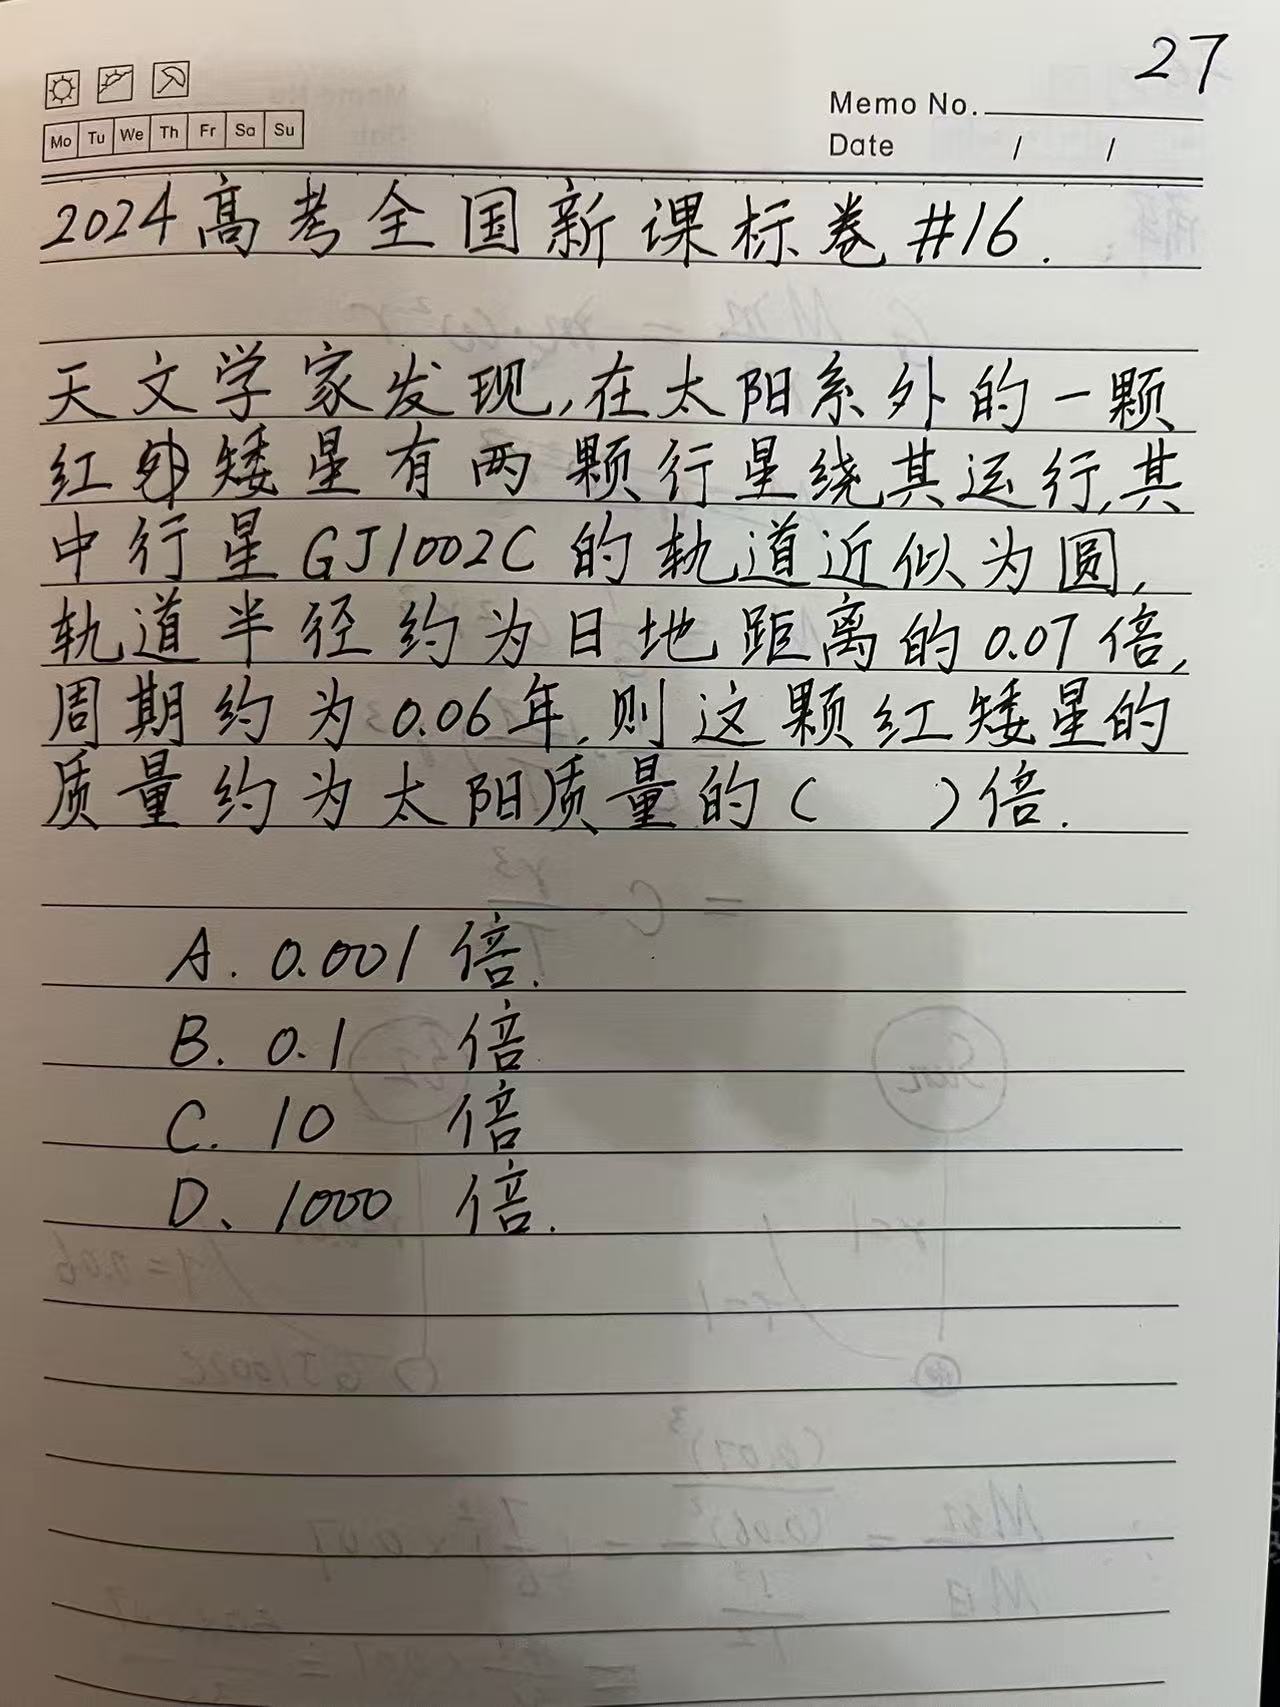 27
Memo No.
Mo Tu We Th Fr Sa Su
Date / /
2024高考全国新课标卷#16.
天文学家发现,在太阳系外的一颗
红矮星有两颗行星绕其运行,其
中行星GJ1002C的轨道近似为圆,
轨道半径约为日地距离的0.07倍,
周期约为0.06年,则这颗红矮星的
质量约为太阳质量的( )倍.
A. 0.001倍.
B. 0.1 倍
C. 10 倍
D、1000 倍.